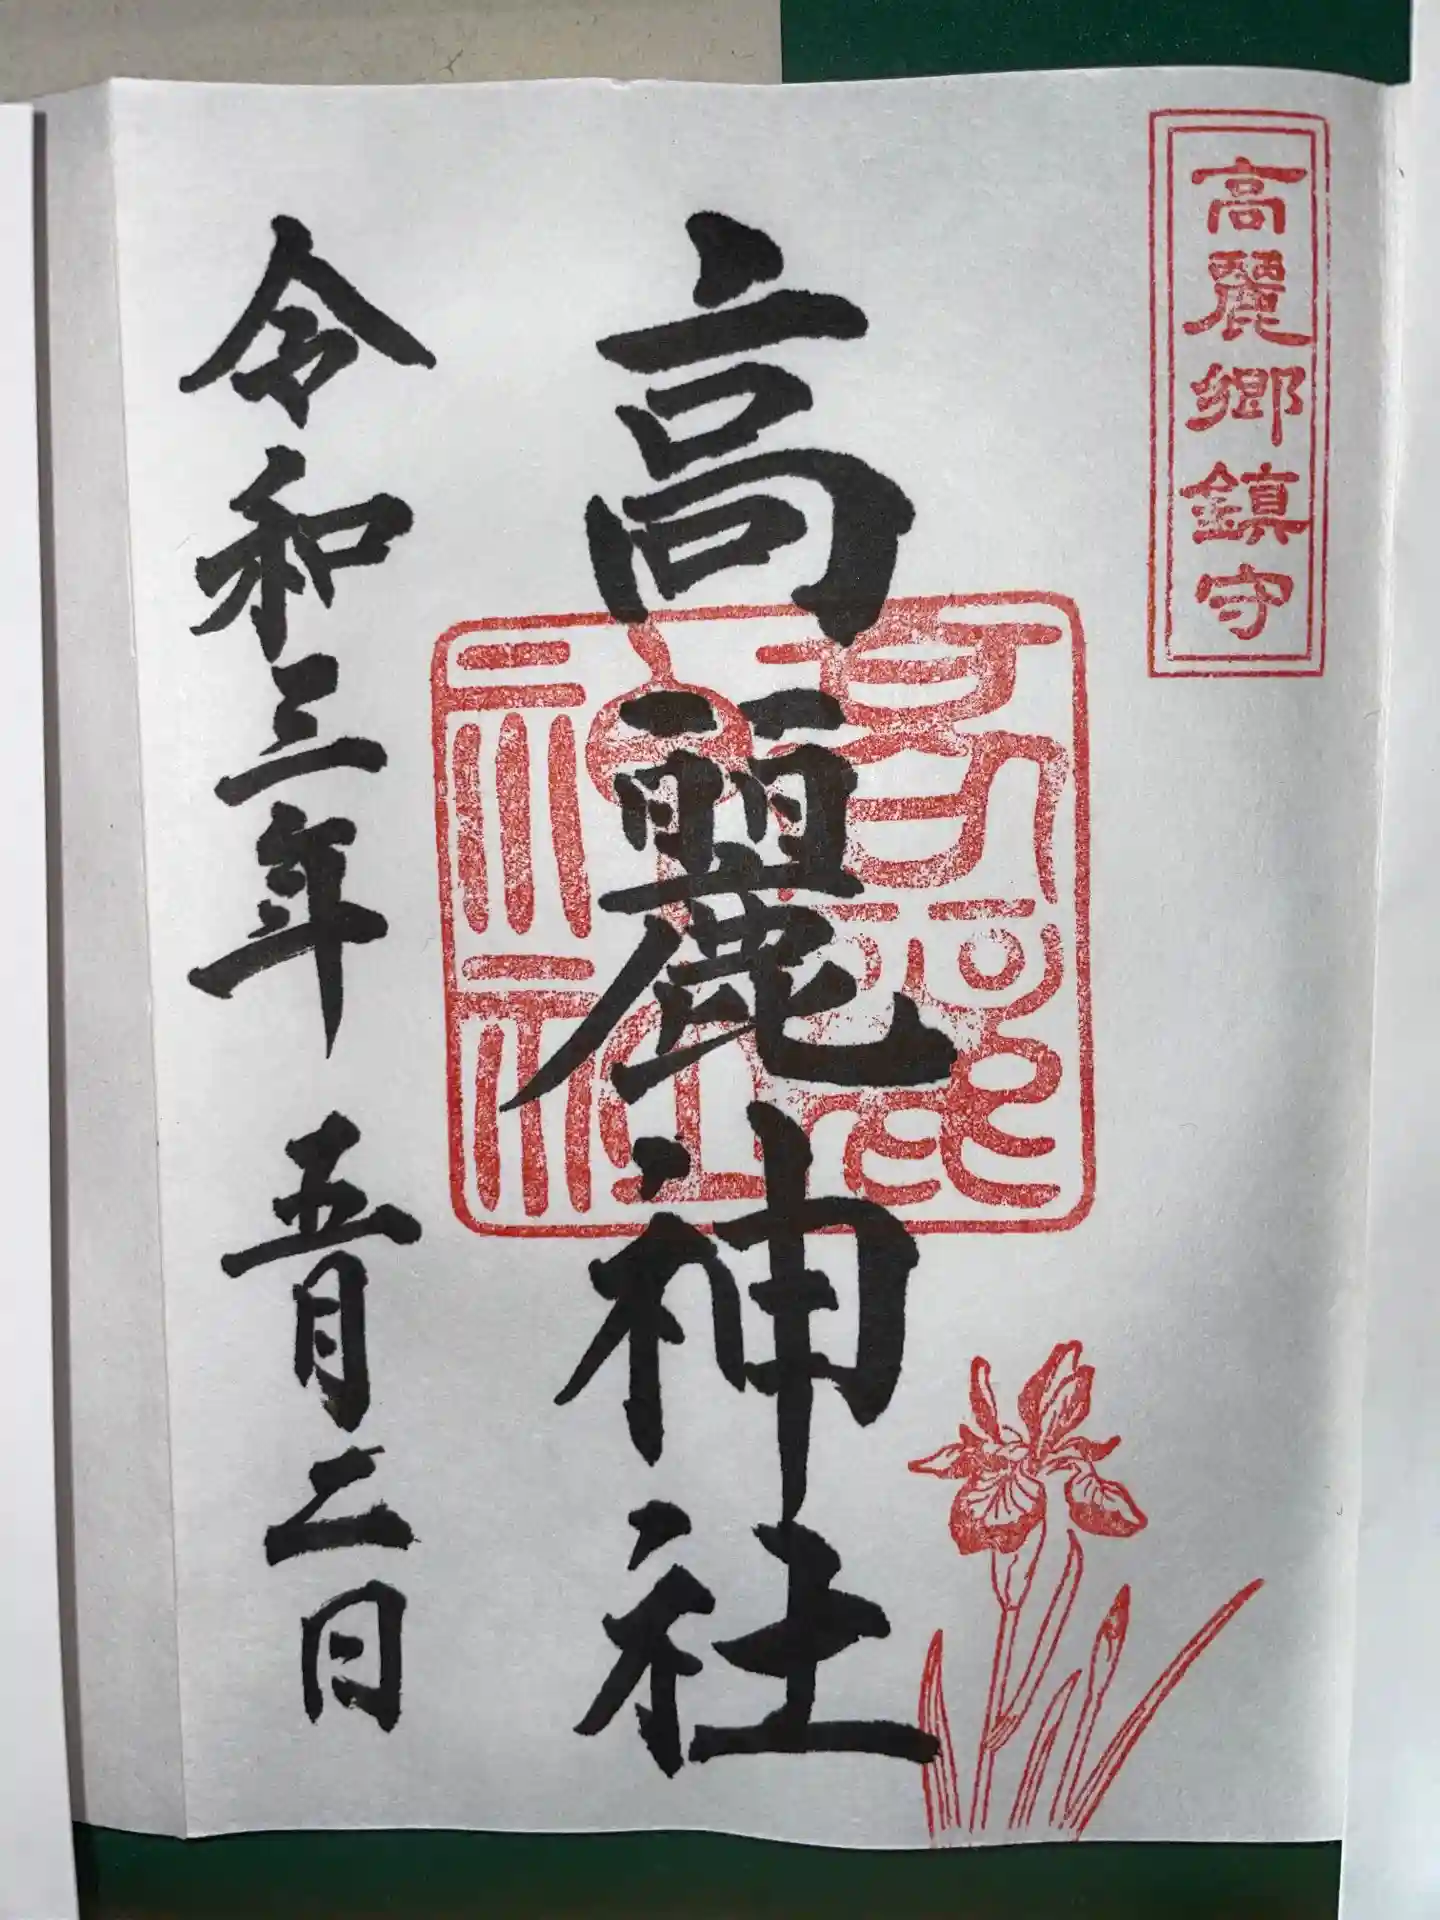 高麗郷鎮守
高麗神社
令和三年 五月二日
高麗神社